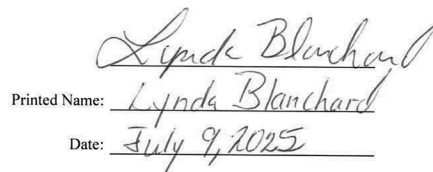 Lynda Blanchard
Printed Name: Lynda Blanchard
Date: July 9, 2025